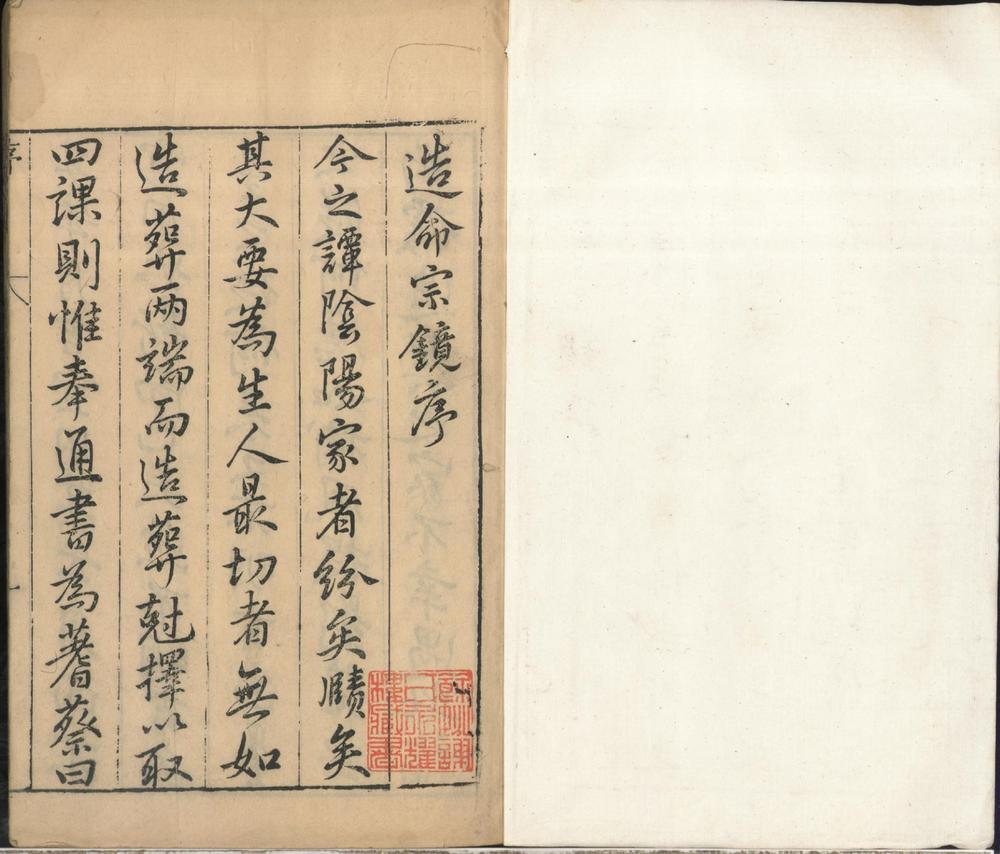 造命宗鏡序
今之譚陰陽家者紛矣賾矣
其大要為生人最切者無如
造葬兩端而造葬尅擇以取
四課則惟奉通書為蓍蔡曰
序
一